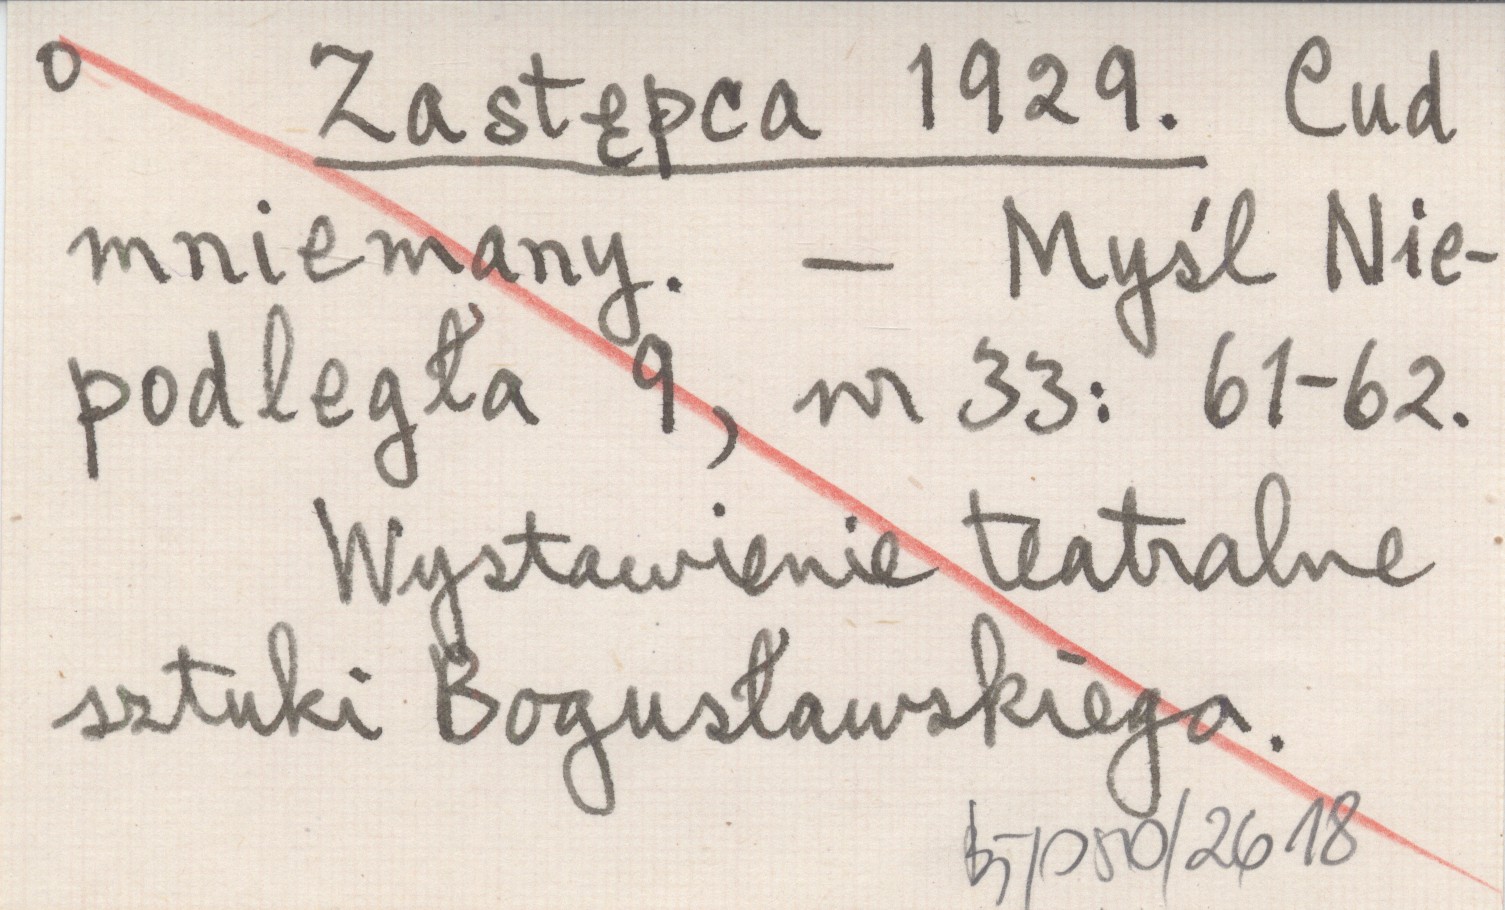 o Zastępca 1929. Cud
mniemany. — Myśl Nie-
podległa 9, nr 33: 61-62.
Wystawienie teatralne
sztuki Bogusławskiego.
/2618